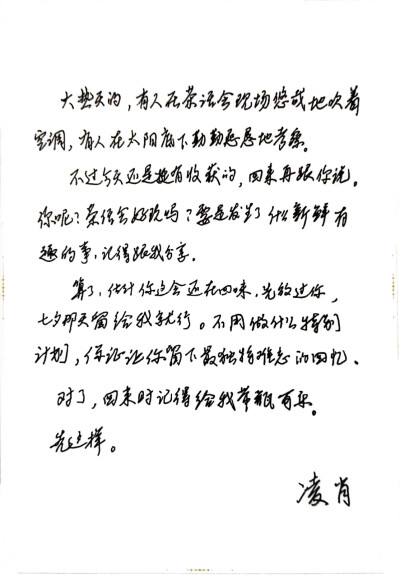 大热天的，有人在茶话会现场悠哉地吹着
空调，有人在太阳底下勤勤恳恳地考察。
不过今天还是挺有收获的，回来再跟你说。
你呢？茶话会好玩吗？要是发生了什么新鲜有
趣的事，记得跟我分享。
算了，估计你这会还在回味，先放过你，
七夕那天留给我就行。不用做什么特别
计划，保证让你留下最独特难忘的回忆、
对了，回来时记得给我带瓶可乐。
先这样。
凌肖